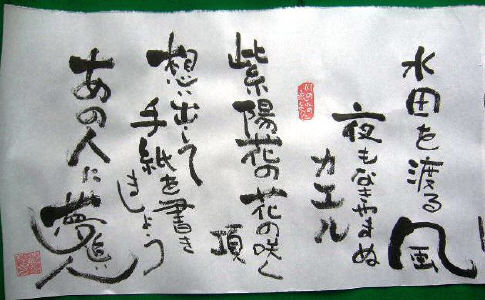 水田を渡る風
夜も啼きやまぬ
カエル
紫陽花の花の咲く
頃
想い出して
手紙を書き
ましょう
あの人に夢